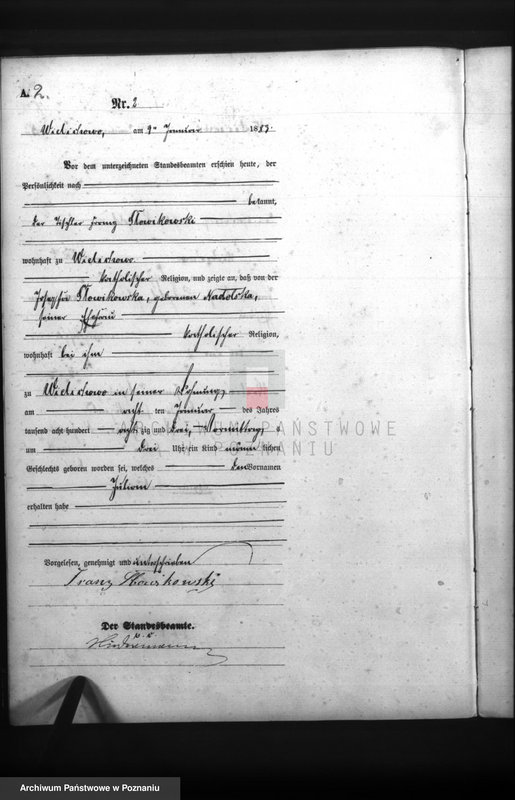 A. 2.
Nr. 2
Wielichowo, am 9ten Januar 1883.
Vor dem unterzeichneten Standesbeamten erschien heute, der
Persönlichkeit nach
bekannt,
der Tischler Franz Słowikowski
wohnhaft zu Wielichowo
katholischer Religion, und zeigte an, daß von der
Josepha Słowikowska, geborenen Nadolska,
seiner Ehefrau
katholischer Religion,
wohnhaft bei ihm
zu Wielichowo in seiner Wohnung,
am acht ten Januar des Jahres
tausend acht hundert acht zig und drei, Vormittags
um drei Uhr ein Kind männ lichen
Geschlechts geboren worden sei, welches den Vornamen
Julian
erhalten habe
ARCHIWUM PAŃSTWOWE
W POZNANIU
Vorgelesen, genehmigt und unterschrieben
Franz Słowikowski
Der Standesbeamte.
Archiwum Państwowe w Poznaniu